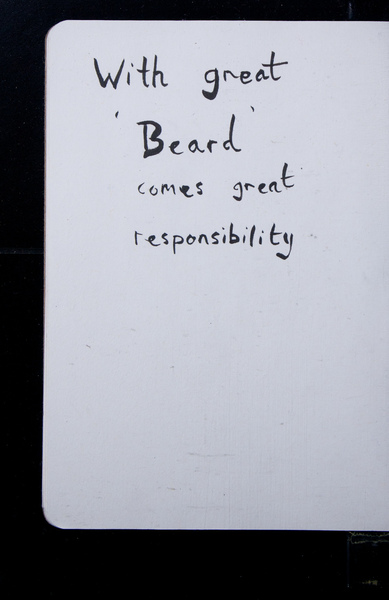 With great
'Beard'
comes great
responsibility